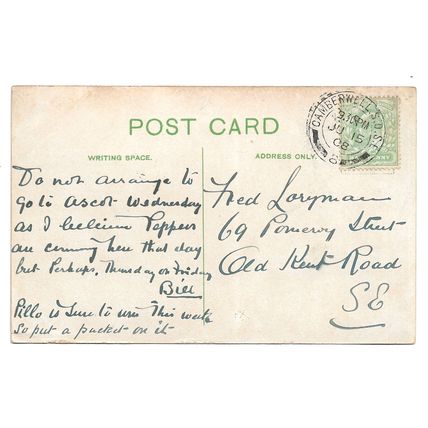 POST CARD
WRITING SPACE.
ADDRESS ONLY.
Do not arrange to
go to Ascot Wednesday
as I believe Peppers
are coming here that day
but Perhaps, Thursday or Friday
Bill
Pillo is sure to win This week
so put a packet on it
Fred Loryman
69 Pomeroy Street
Old Kent Road
SE
CAMBERWELL S.O. S.E.
9.30PM
JU 15
08